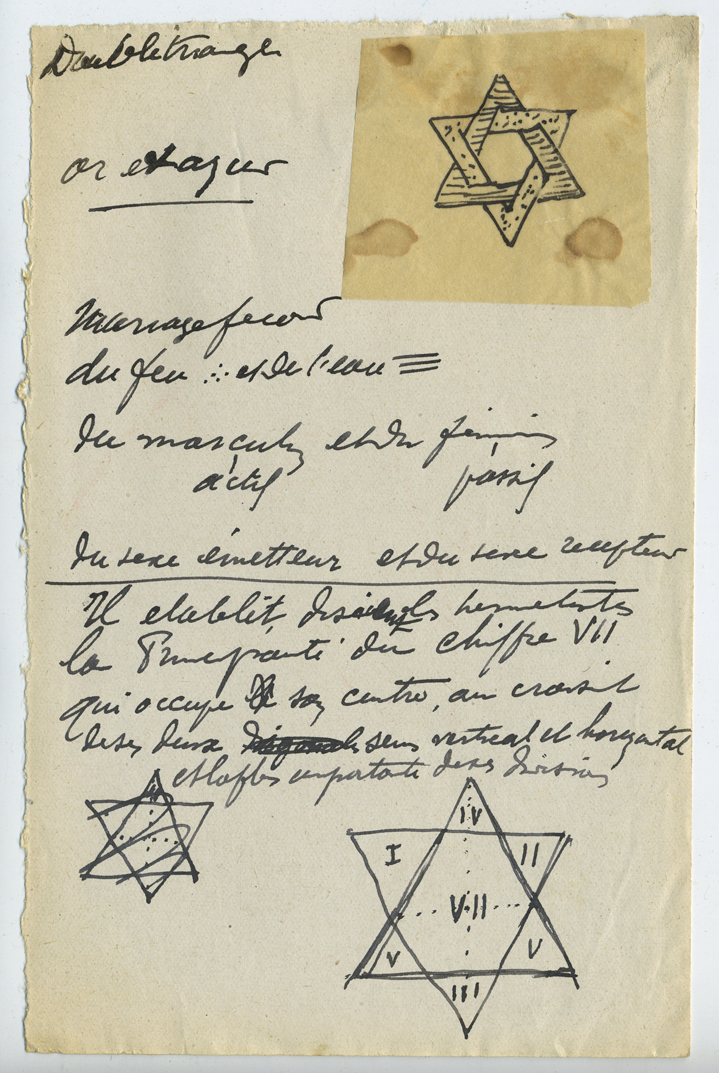 Double triangle
or et azur
Mariage fécond
du feu ∴ et de l'eau ≡
du masculin et du féminin
actif passif
du sexe émetteur et du sexe récepteur
Il établit, disent les hermetistes
la Principauté du chiffre VII
qui occupe son centre, au croisil
de ses deux sens vertical et horizontal
et la plus importante de ses divisions
IV
I II
VII
V V
III